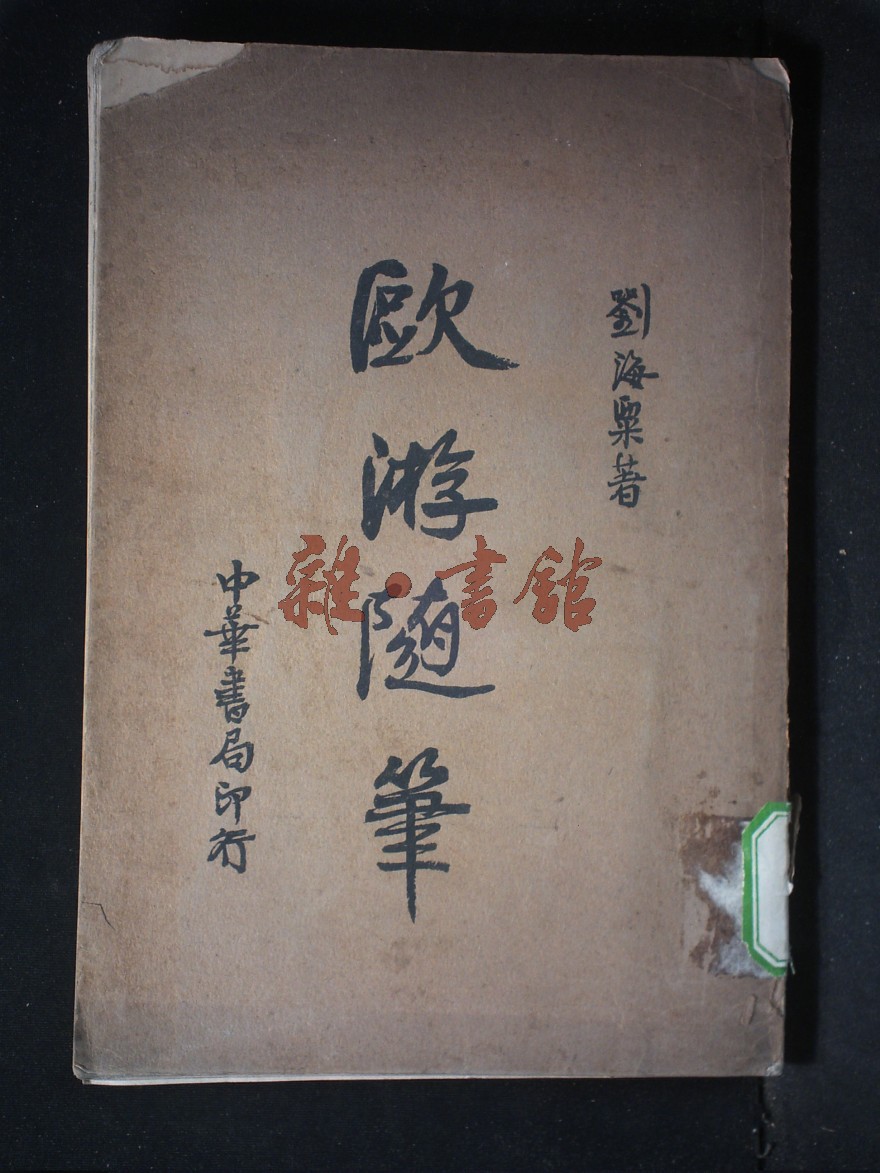 劉海粟著
歐游隨筆
中華書局印行
雜·書館